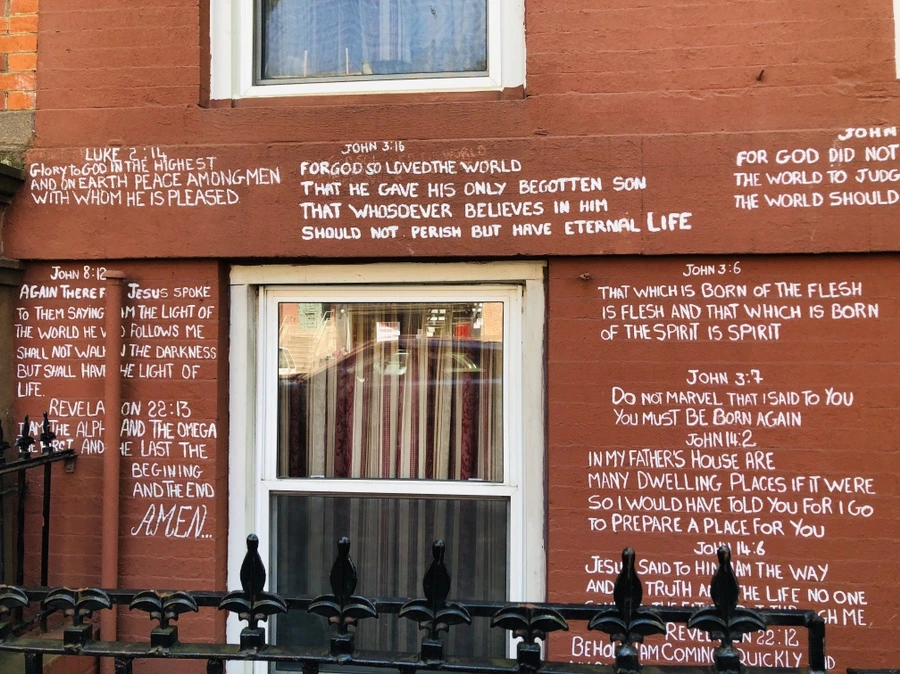 LUKE 2:14
Glory to GOD IN THE HIGHEST
AND ON EARTH PEACE AMONG MEN
WITH WHOM HE IS PLEASED.
JOHN 3:16
FOR GOD SO LOVED THE WORLD
THAT HE GAVE HIS ONLY BEGOTTEN SON
THAT WHOSOEVER BELIEVES IN HIM
SHOULD NOT PERISH BUT HAVE ETERNAL LIFE
JOHN
FOR GOD DID NOT
THE WORLD TO JUDG
THE WORLD SHOULD
JOHN 8:12
AGAIN THERE F JESUS SPOKE
TO THEM SAYING AM THE LIGHT OF
THE WORLD HE FOLLOWS ME
SHALL NOT WALK THE DARKNESS
BUT SHALL HAVE HE LIGHT OF
LIFE.
REVELA ON 22:13
I AM THE ALPH AND THE OMEGA
THE FIRST AND HE LAST THE
BEGINING
AND THE END
AMEN...
JOHN 3:6
THAT WHICH IS BORN OF THE FLESH
IS FLESH AND THAT WHICH IS BORN
OF THE SPIRIT IS SPIRIT
JOHN 3:7
DO NOT MARVEL THAT I SAID TO YOU
YOU MUST BE BORN AGAIN
JOHN 14:2
IN MY FATHER'S HOUSE ARE
MANY DWELLING PLACES IF IT WERE
SO I WOULD HAVE TOLD YOU FOR I GO
TO PREPARE A PLACE FOR YOU
JOHN 14:6
JESUS SAID TO HIM I AM THE WAY
AND TRUTH AND THE LIFE NO ONE
GH ME,
REVELATION 22:12
BEHOLD I AM COMING QUICKLY